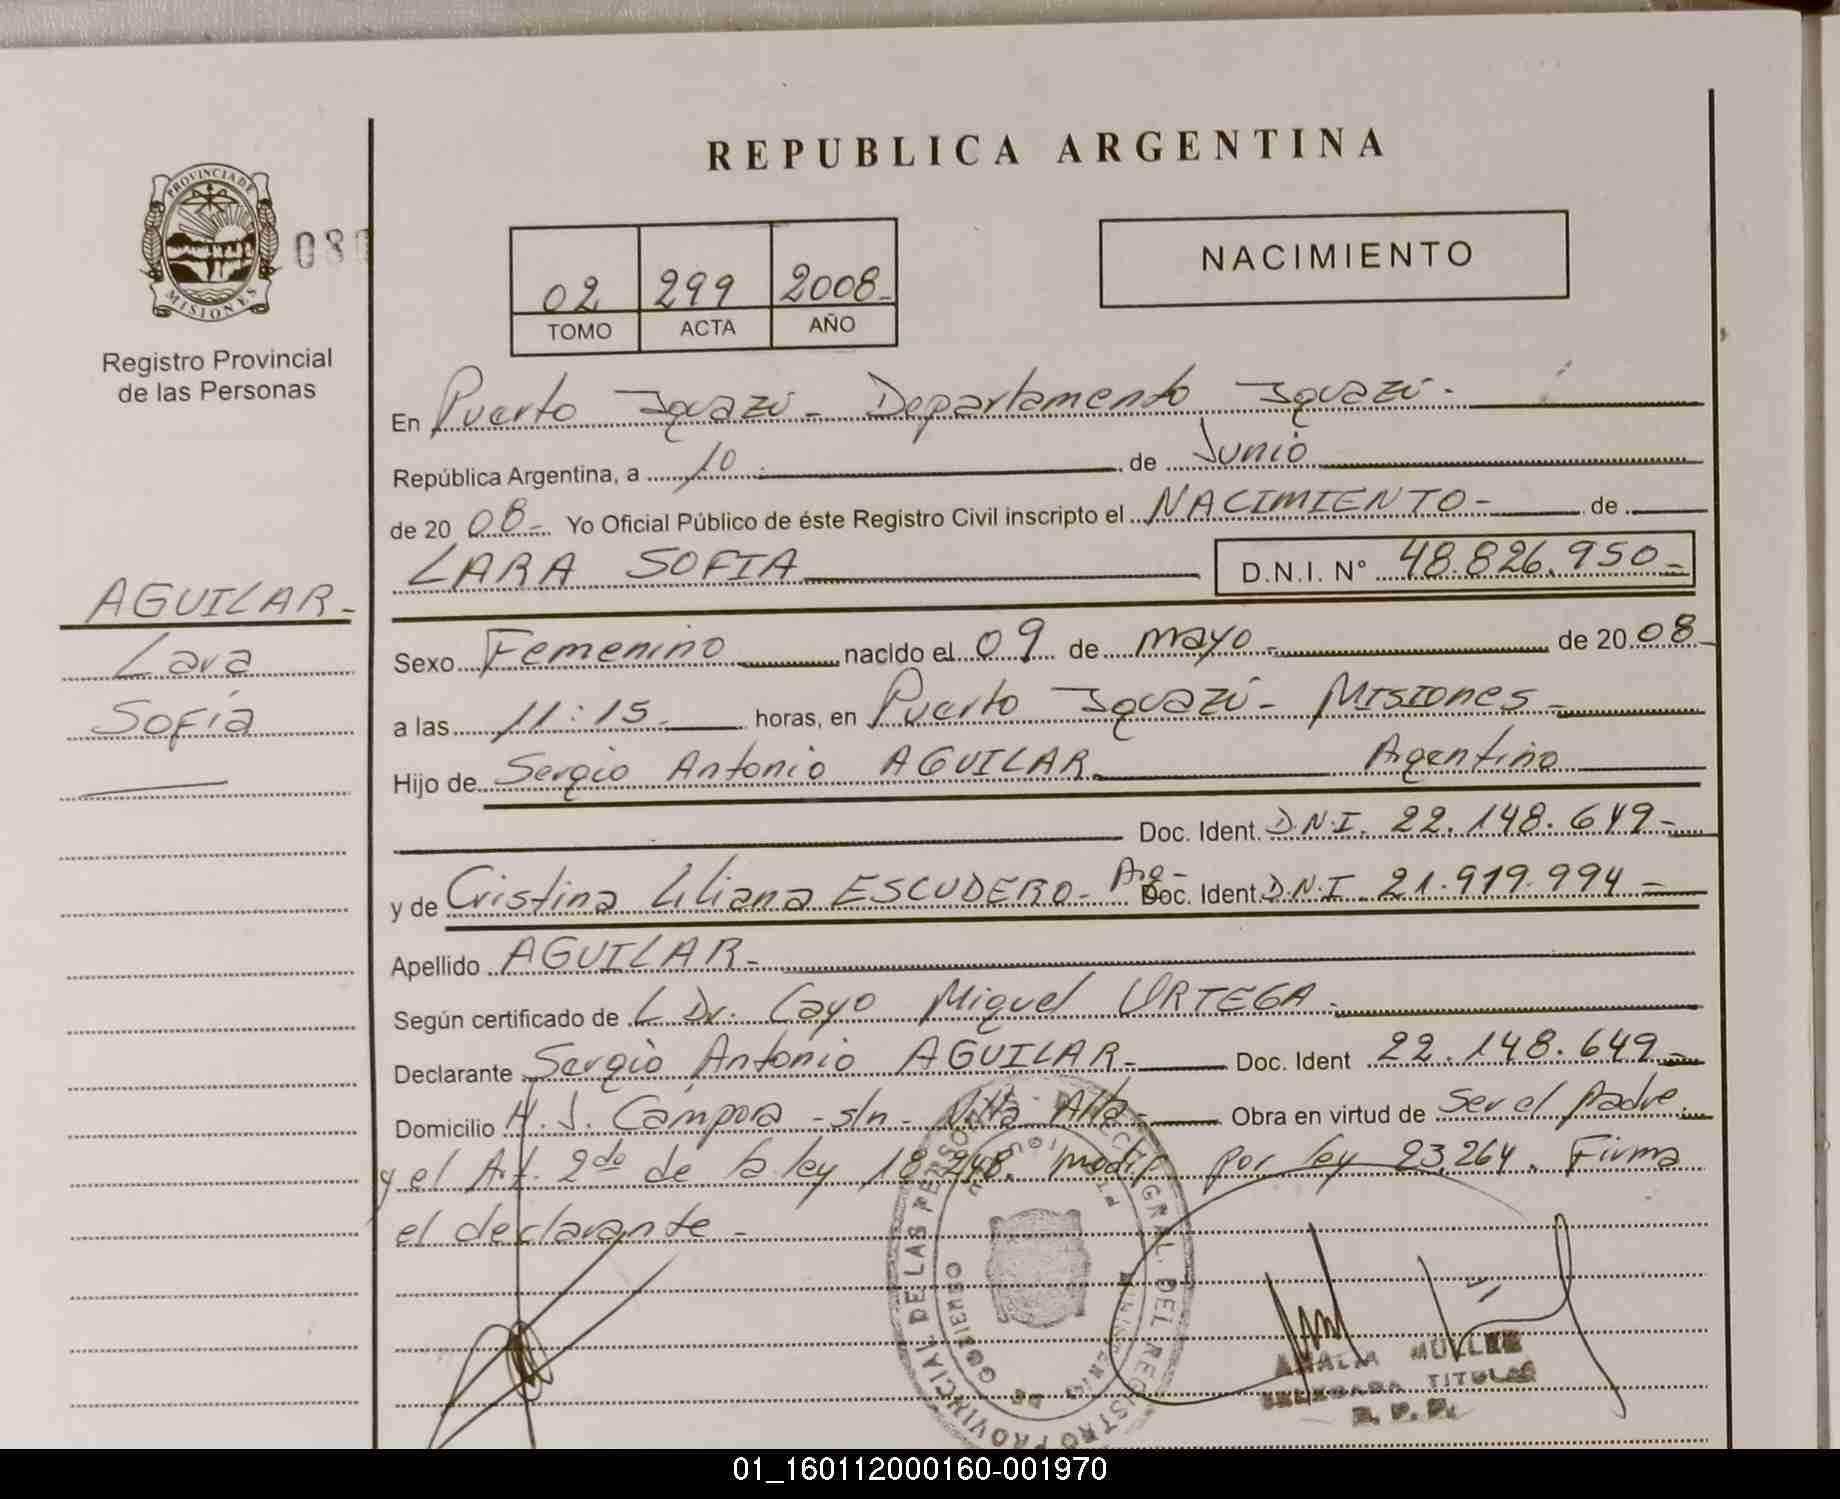 REPUBLICA ARGENTINA
PROVINCIA DE MISIONES
080
Registro Provincial
de las Personas
02 299 2008-
TOMO ACTA AÑO
NACIMIENTO
En Puerto Iguazú - Departamento Iguazú -
República Argentina, a 10 de Junio
de 20 08- Yo Oficial Público de éste Registro Civil inscripto el NACIMIENTO - de
LARA SOFIA D.N.I. Nº 48.826.950-
AGUILAR-
Lara
Sofía
Sexo Femenino nacido el 09 de mayo - de 20 08-
a las 11:15 horas, en Puerto Iguazú - Misiones -
Hijo de Sergio Antonio AGUILAR Argentino
Doc. Ident. D.N.I. 22.148.649-
y de Cristina Liliana ESCUDERO - Arg- Doc. Ident. D.N.I 21.979.994-
Apellido AGUILAR-
Según certificado de L Dr. Cayo Miguel ORTEGA -
Declarante Sergio Antonio AGUILAR- Doc. Ident 22.148.649-
Domicilio H. J. Campora - s/n - Villa Alta - Obra en virtud de Ser el padre
y el Art. 2do de la ley 18.248. modif por ley 23.264. Firma
el declarante -
DIRECC. GRAL. DEL REGISTRO PROVINCIAL DE LAS PERSONAS
MINISTERIO DE GOBIERNO
MULLER
DELEGADA TITULAR
R. P. P.
01_160112000160-001970